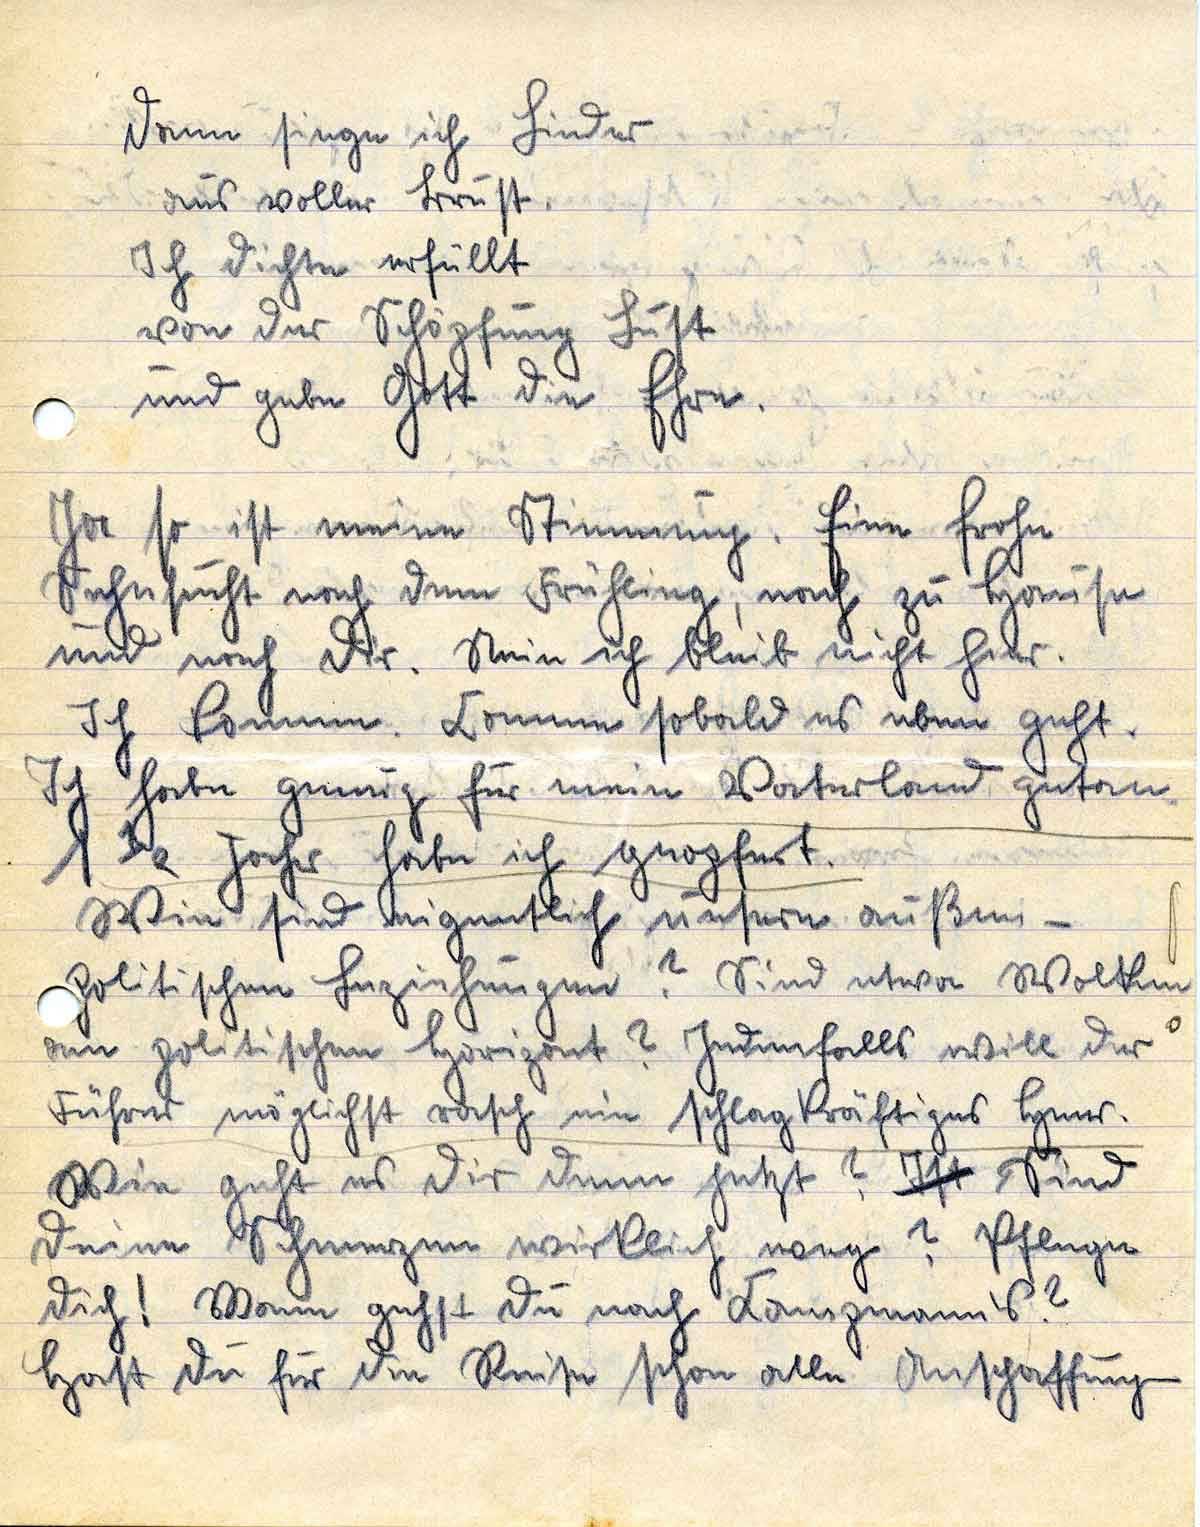 Dann singe ich Lieder
aus voller Brust.
Ich dichte erfüllt
von der Schöpfung Lust
und gebe Gott die Ehre.
Ja so ist meine Stimmung. Eine frohe
Sehnsucht nach dem Frühling, nach zu Hause
und nach Dir. Nein ich bleib nicht hier.
Ich komme. Komme sobald es eben geht.
Ich habe genug für mein Vaterland getan.
Jahr habe ich geopfert.
Wie sind eigentlich unsere außen-
politischen Beziehungen? Sind etwa Wolken
am politischen Horizont? Jedenfalls will der
Führer möglichst rasch ein schlagkräftiges Heer.
Wie geht es Dir denn jetzt? Ist Sind
Deine Schmerzen wirklich weg? Pflege
Dich! Wann gehst Du nach
Hast Du für die Reise schon alle Anschaffung-